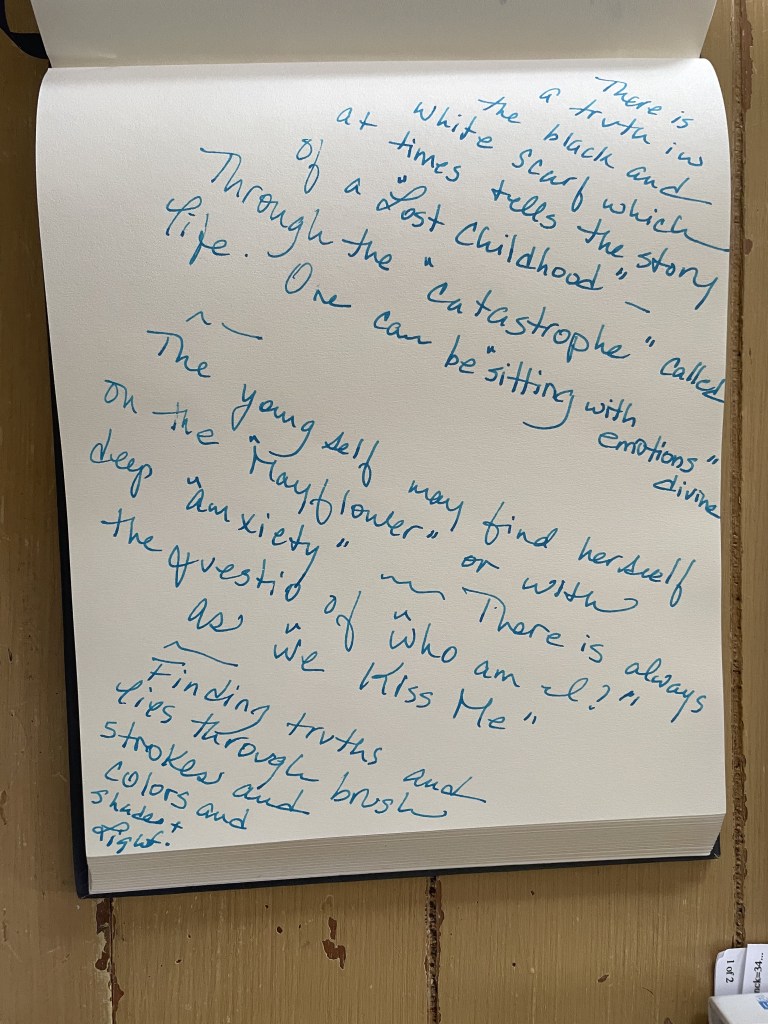 There is
a truth in
the black and
white scarf which
at times tells the story
of a "Lost Childhood" –
Through the "catastrophe" called
life. One can be "sitting with
emotions"
divine
The young self may find herself
on the "Mayflower" or with
deep "anxiety" ~ There is always
the questio of "who am I?"
as "We Kiss Me"
Finding truths and
lies through brush
strokes and
colors and
shades +
light.
1 of 2
ack=34...